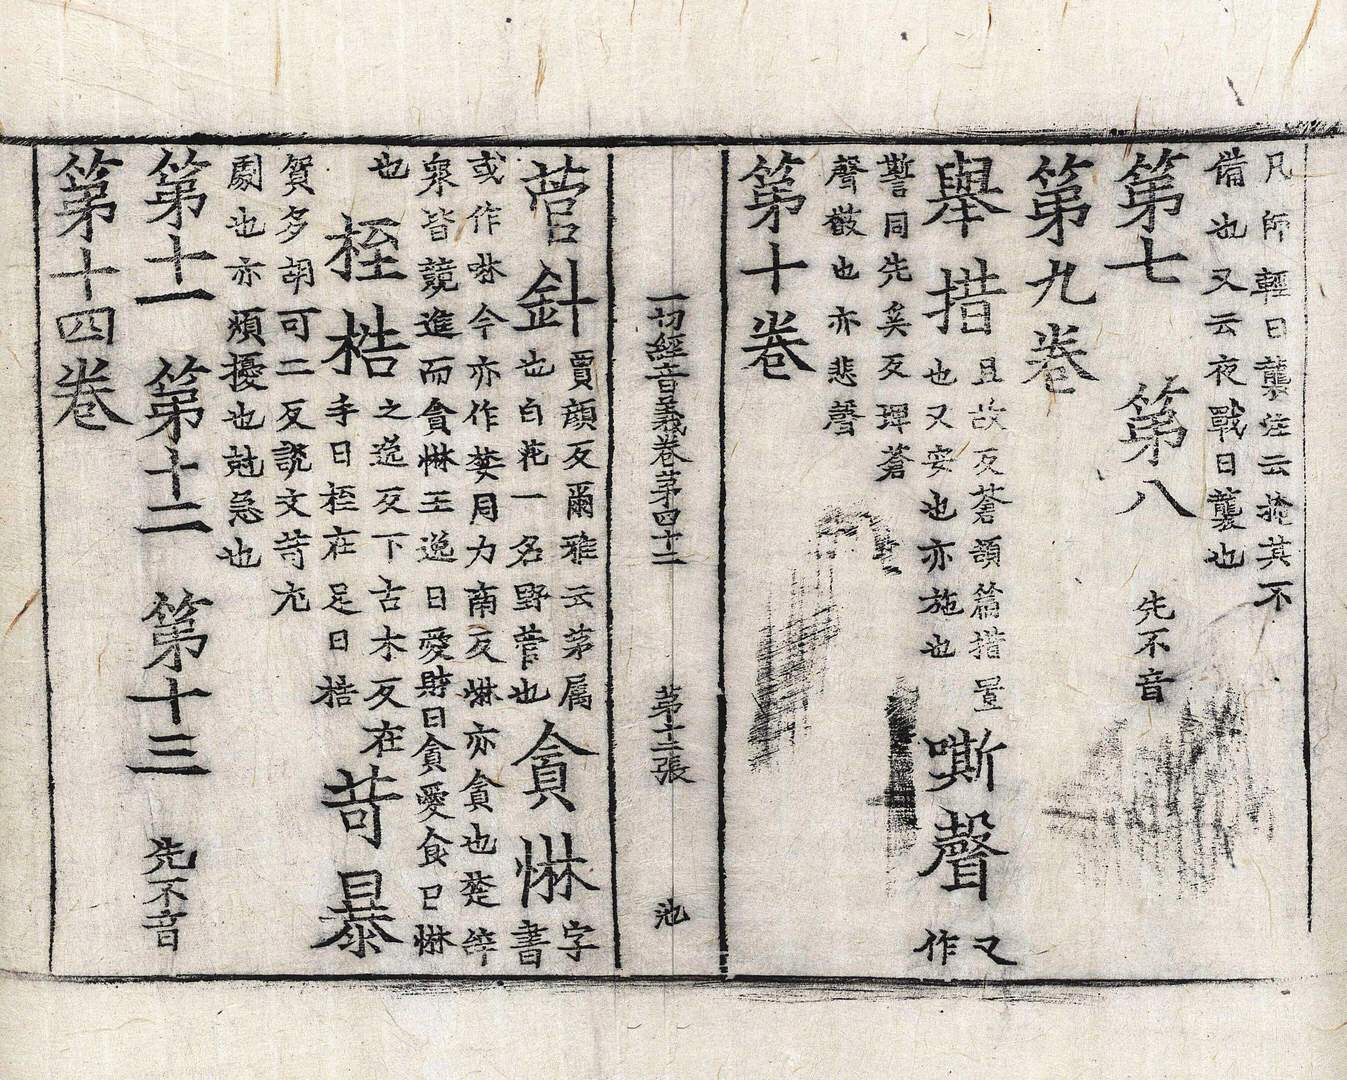 凡師輕曰襲注云掩其不
備也又云夜戰日襲也
第七 第八 先不音
第九卷
舉措
且故反蒼頡篇措置
也又安也亦施也
嘶聲
又
作
誓同先奚反埤蒼
聲散也亦悲聲
第十卷
一切經音義卷苐四十二 苐十二張 池
菅針
賈顔反爾雅云茅属
也白花一名野菅也
貪惏
字
書
或作啉今亦作婪同力南反惏亦貪也楚辝
衆皆競進而貪惏王逸曰愛財曰貪愛食曰惏
也
桎梏
之逸反下古木反在
手曰桎在足曰梏
苛暴
賀多胡可二反說文苛尤
劇也亦煩擾也尅急也
第十一 第十二 第十三 先不音
第十四卷